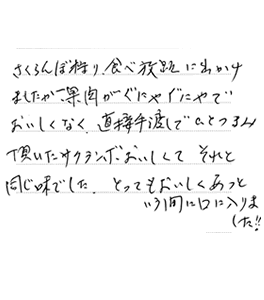 さくらんぼ狩り、食べ放題に出かけ
ましたが、果肉がぐにゃぐにゃで
おいしくなく、直接手渡しで
頂いたサクランボおいしくて それと
同じ味でした。とってもおいしくあっと
いう間に口に入りま
した!!